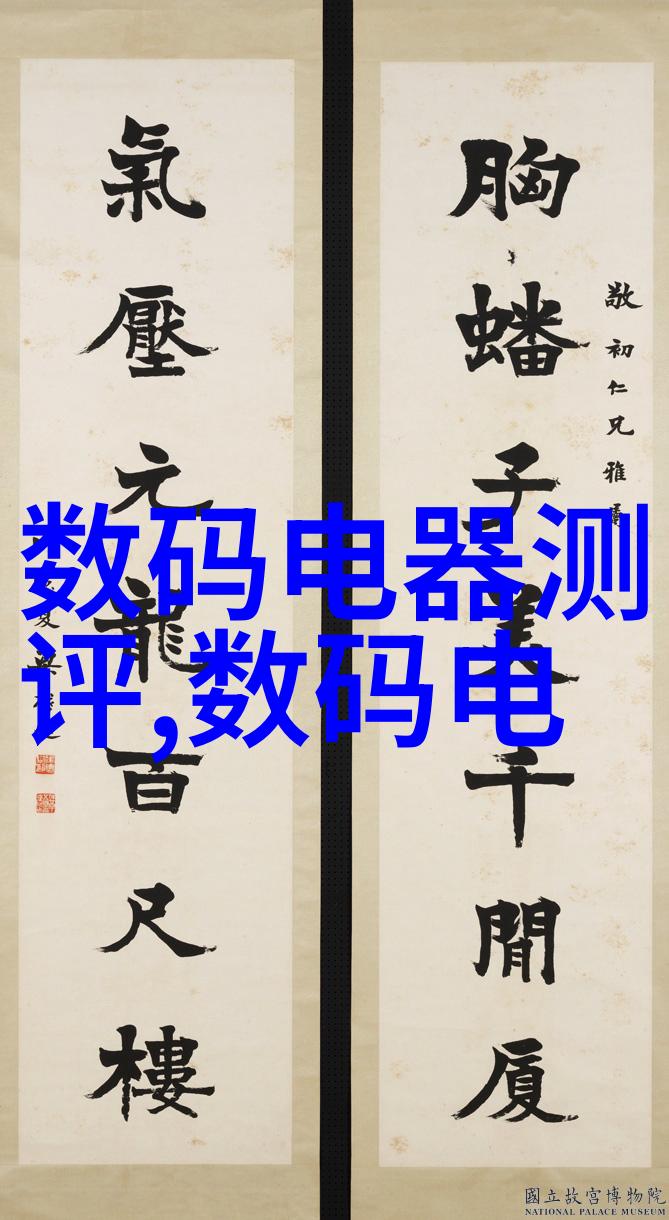 胸蟠子美千間厦
敬初仁兄雅屬
氣壓元龍百尺樓
数码电器测
评,数码电
國立故宮博物院
NATIONAL PALACE MUSEUM